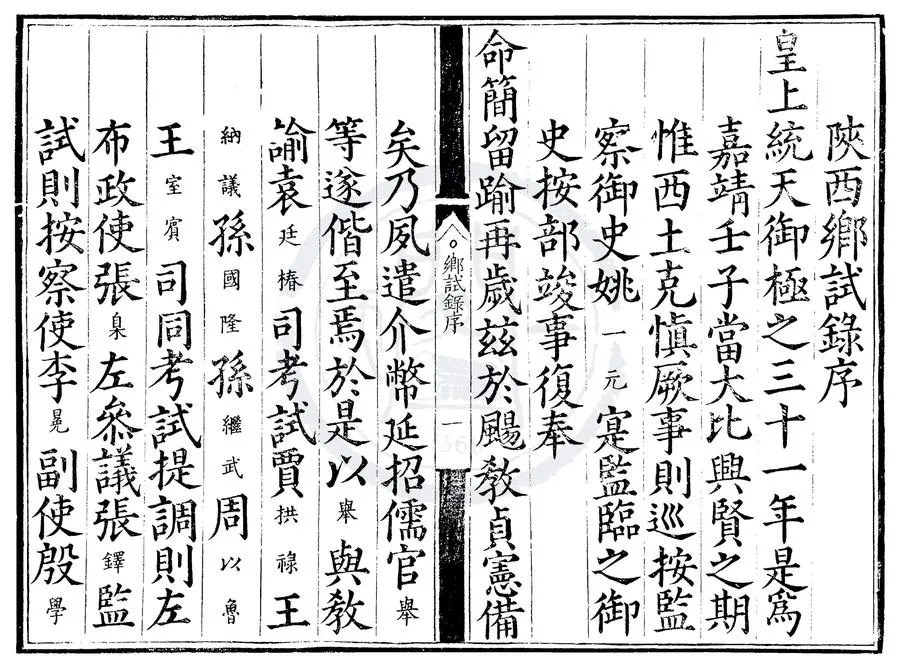 陝西鄉試錄序
皇上統天御極之三十一年是爲
嘉靖壬子當大比興賢之期
惟西土克慎厥事則巡按監
察御史姚一元寔監臨之御
史按部竣事復奉
命簡留踰再歲茲於颺教貞憲備
鄉試錄序 一
矣乃夙遣介幣延招儒官舉
等遂偕至焉於是以舉與教
諭袁廷椿司考試賈拱祿王
納議孫國隆孫繼武周以魯
王室賓司同考試提調則左
布政使張臬左叅議張鐸監
試則按察使李冕副使殷學